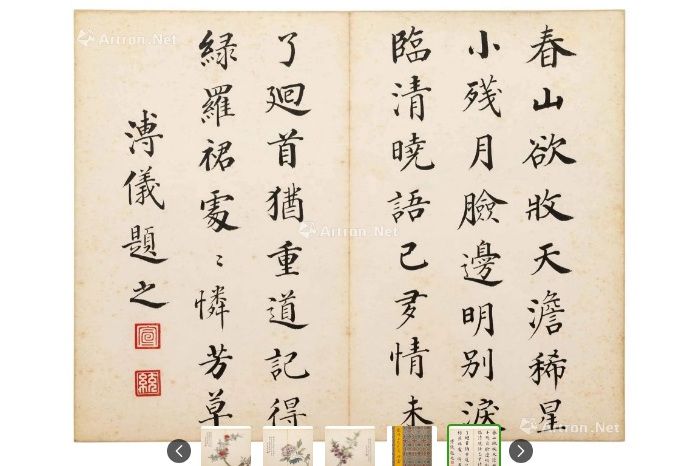 春山欲收天澹稀星
小殘月臉邊明別淚
臨清曉語已多情未
了廻首猶重道記得
緑羅裙處〻憐芳草
溥儀題之
宣
統
Artron.Net
Artron.Net
Artron.Net
Artron.Net